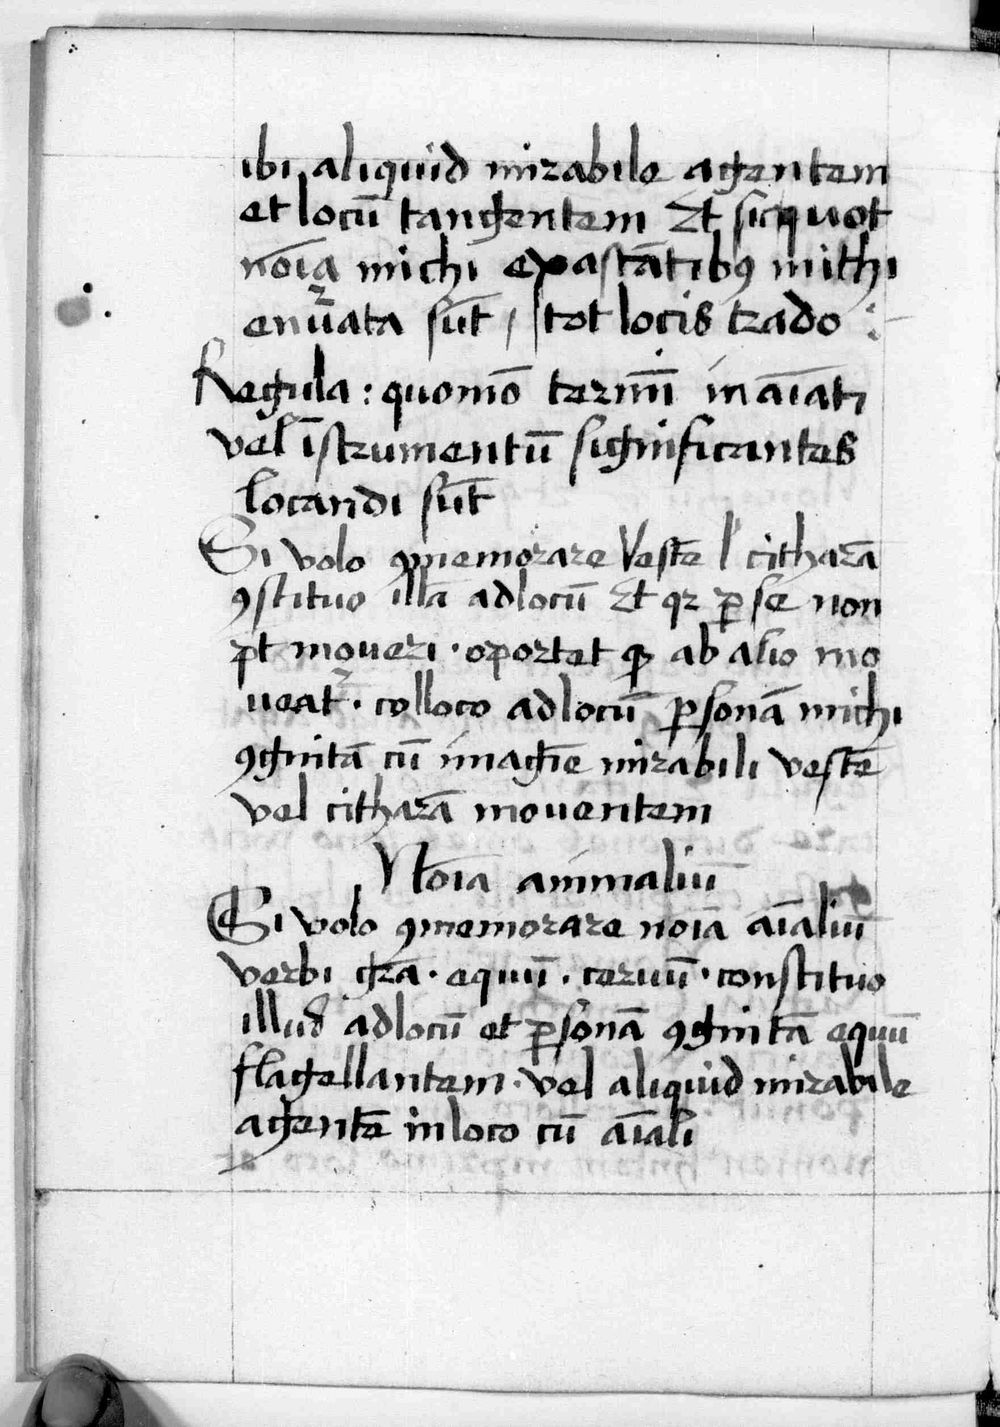 ibi aliquid mirabile agentem
et locū tangentem Et sicquot
nōīa michi exastātibꝯ mithi
enūata sūt / tot locis trado :
Regula : quomō termīī inaīati
vel īstrumentū significantes
locandi sūt
Si volo ꝯmemorare Vestē lˀ citharā
ꝯstituo illā ad locū Et qꝛ ꝑ se non
pt moveri · oportet ꝙ ab alio mo
ueatꝛ · colloco ad locū ꝑsonā michi
ꝯgnitā cū imagīe mirabili vestē
vel citharā mouentem
Noīa animaliū
Si volo ꝯmemorare noīa aīaliū
verbi grā · equū · ceruū · constituo
illud ad locū et ꝑsonā ꝯgnitā equū
flagellantem · vel aliquid mirabile
agentē in loco cū aīali